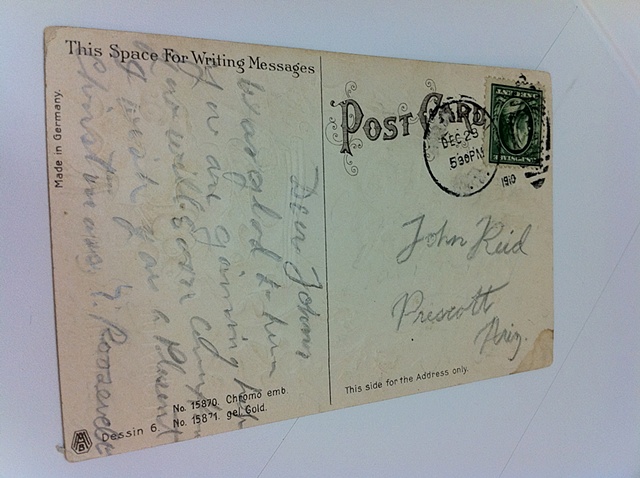 This Space For Writing Messages
Made in Germany.
Dear John
Was glad to hear
you are gaining
you will soon
I wish you a Pleasent
Christmas.
No. 15870. Chromo emb.
No. 15871. gel. Gold.
Dessin 6.
POST CARD
DEC 29
530 PM
1910
John Reid
Prescott
Ariz.
This side for the Address only.